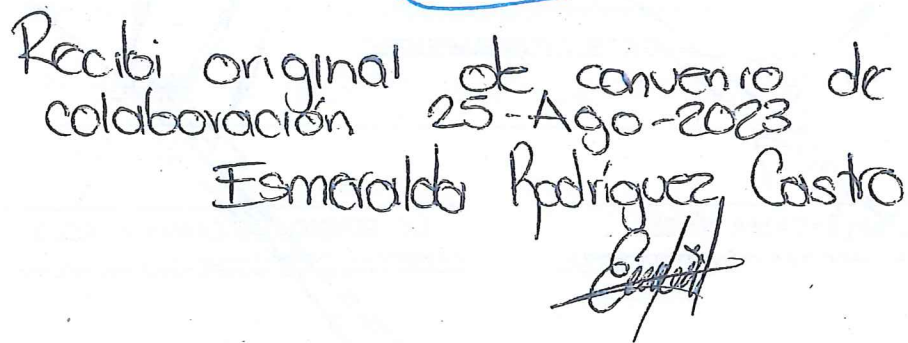 Recibi original de convenio de
colaboración 25-Ago-2023
Esmeralda Rodríguez Castro